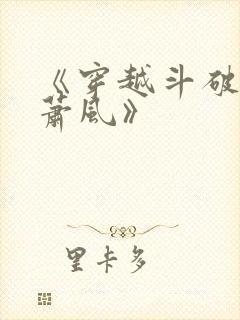 《穿越斗破
萧风》
里卡多